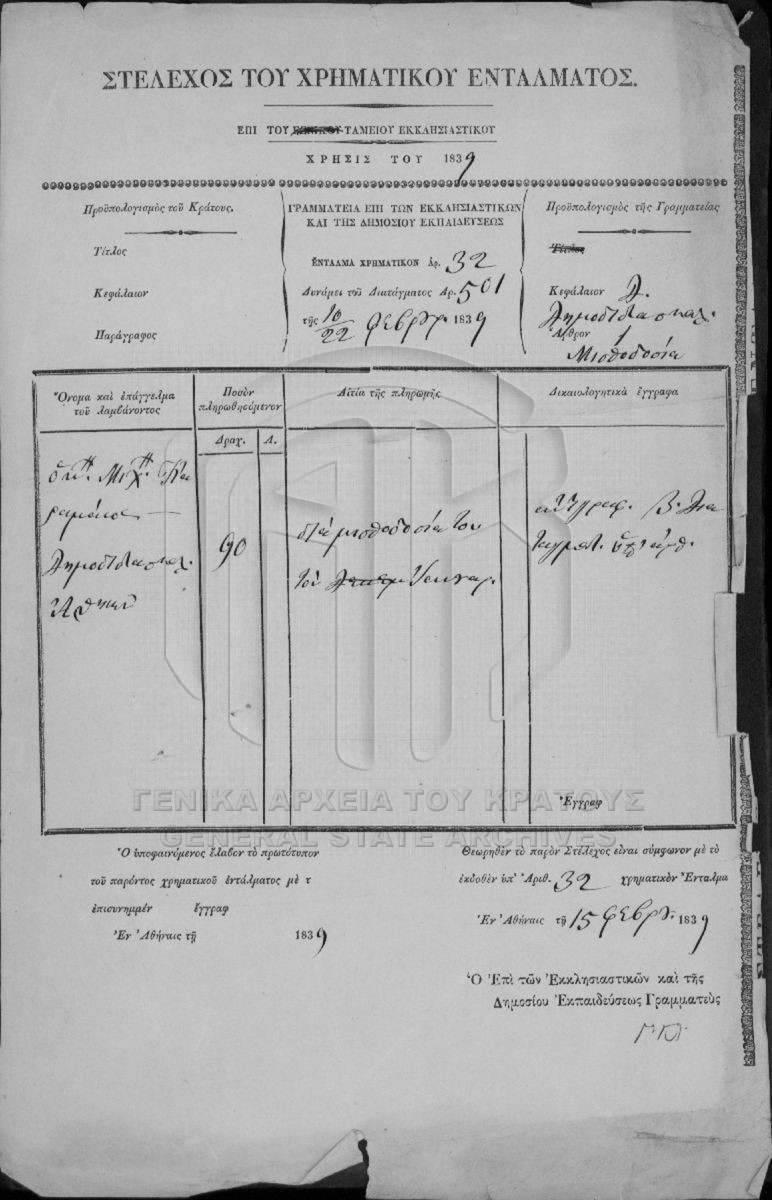 ΣΤΕΛΕΧΟΣ ΤΟΥ ΧΡΗΜΑΤΙΚΟΥ ΕΝΤΑΛΜΑΤΟΣ.
ΕΠΙ ΤΟΥ ΤΑΜΕΙΟΥ ΕΚΚΛΗΣΙΑΣΤΙΚΟΥ
ΧΡΗΣΙΣ ΤΟΥ 1839
Προϋπολογισμὸς τοῦ Κράτους.
Τίτλος
Κεφάλαιον
Παράγραφος
ΓΡΑΜΜΑΤΕΙΑ ΕΠΙ ΤΩΝ ΕΚΚΛΗΣΙΑΣΤΙΚΩΝ
ΚΑΙ ΤΗΣ ΔΗΜΟΣΙΟΥ ΕΚΠΑΙΔΕΥΣΕΩΣ
ΕΝΤΑΛΜΑ ΧΡΗΜΑΤΙΚΟΝ Ἀρ. 32
Δυνάμει τοῦ Διατάγματος Ἀρ. 501
τῆς 10/22 Φεβρ. 1839
Προϋπολογισμὸς τῆς Γραμματείας
Τίτλος
Κεφάλαιον
Δημοδιδασκαλ.
Ἄρθρον 1
Μισθοδοσία
Ὄνομα καὶ ἐπάγγελμα
τοῦ λαμβάνοντος
Ποσὸν
πληρωθησόμενον
Δραχ. Λ.
Αἰτία τῆς πληρωμῆς
Δικαιολογητικὰ ἔγγραφα
Μιχ.
Δημοδιδασκαλ.
Ἀθηνῶν
90
διὰ μισθοδοσίαν του
τοῦ Ἰανουαρ.
ἀντίγραφ. Β. Δια
ταγματ.
Ἔγγραφ
ΓΕΝΙΚΑ ΑΡΧΕΙΑ ΤΟΥ ΚΡΑΤΟΥΣ
GENERAL STATE ARCHIVES
Ὁ ὑποφαινόμενος ἔλαβον τὸ πρωτότυπον
τοῦ παρόντος χρηματικοῦ ἐντάλματος μὲ τ
ἐπισυνημμέν ἔγγραφ
Ἐν Ἀθήναις τῇ 1839
Θεωρηθὲν τὸ παρὸν Στέλεχος εἶναι σύμφωνον μὲ τὸ
ἐκδοθὲν ὑπ' Ἀριθ. 32 χρηματικὸν Ἔνταλμα
Ἐν Ἀθήναις τῇ 15 Φεβρ. 1839
Ὁ Ἐπὶ τῶν Ἐκκλησιαστικῶν καὶ τῆς
Δημοσίου Ἐκπαιδεύσεως Γραμματεὺς